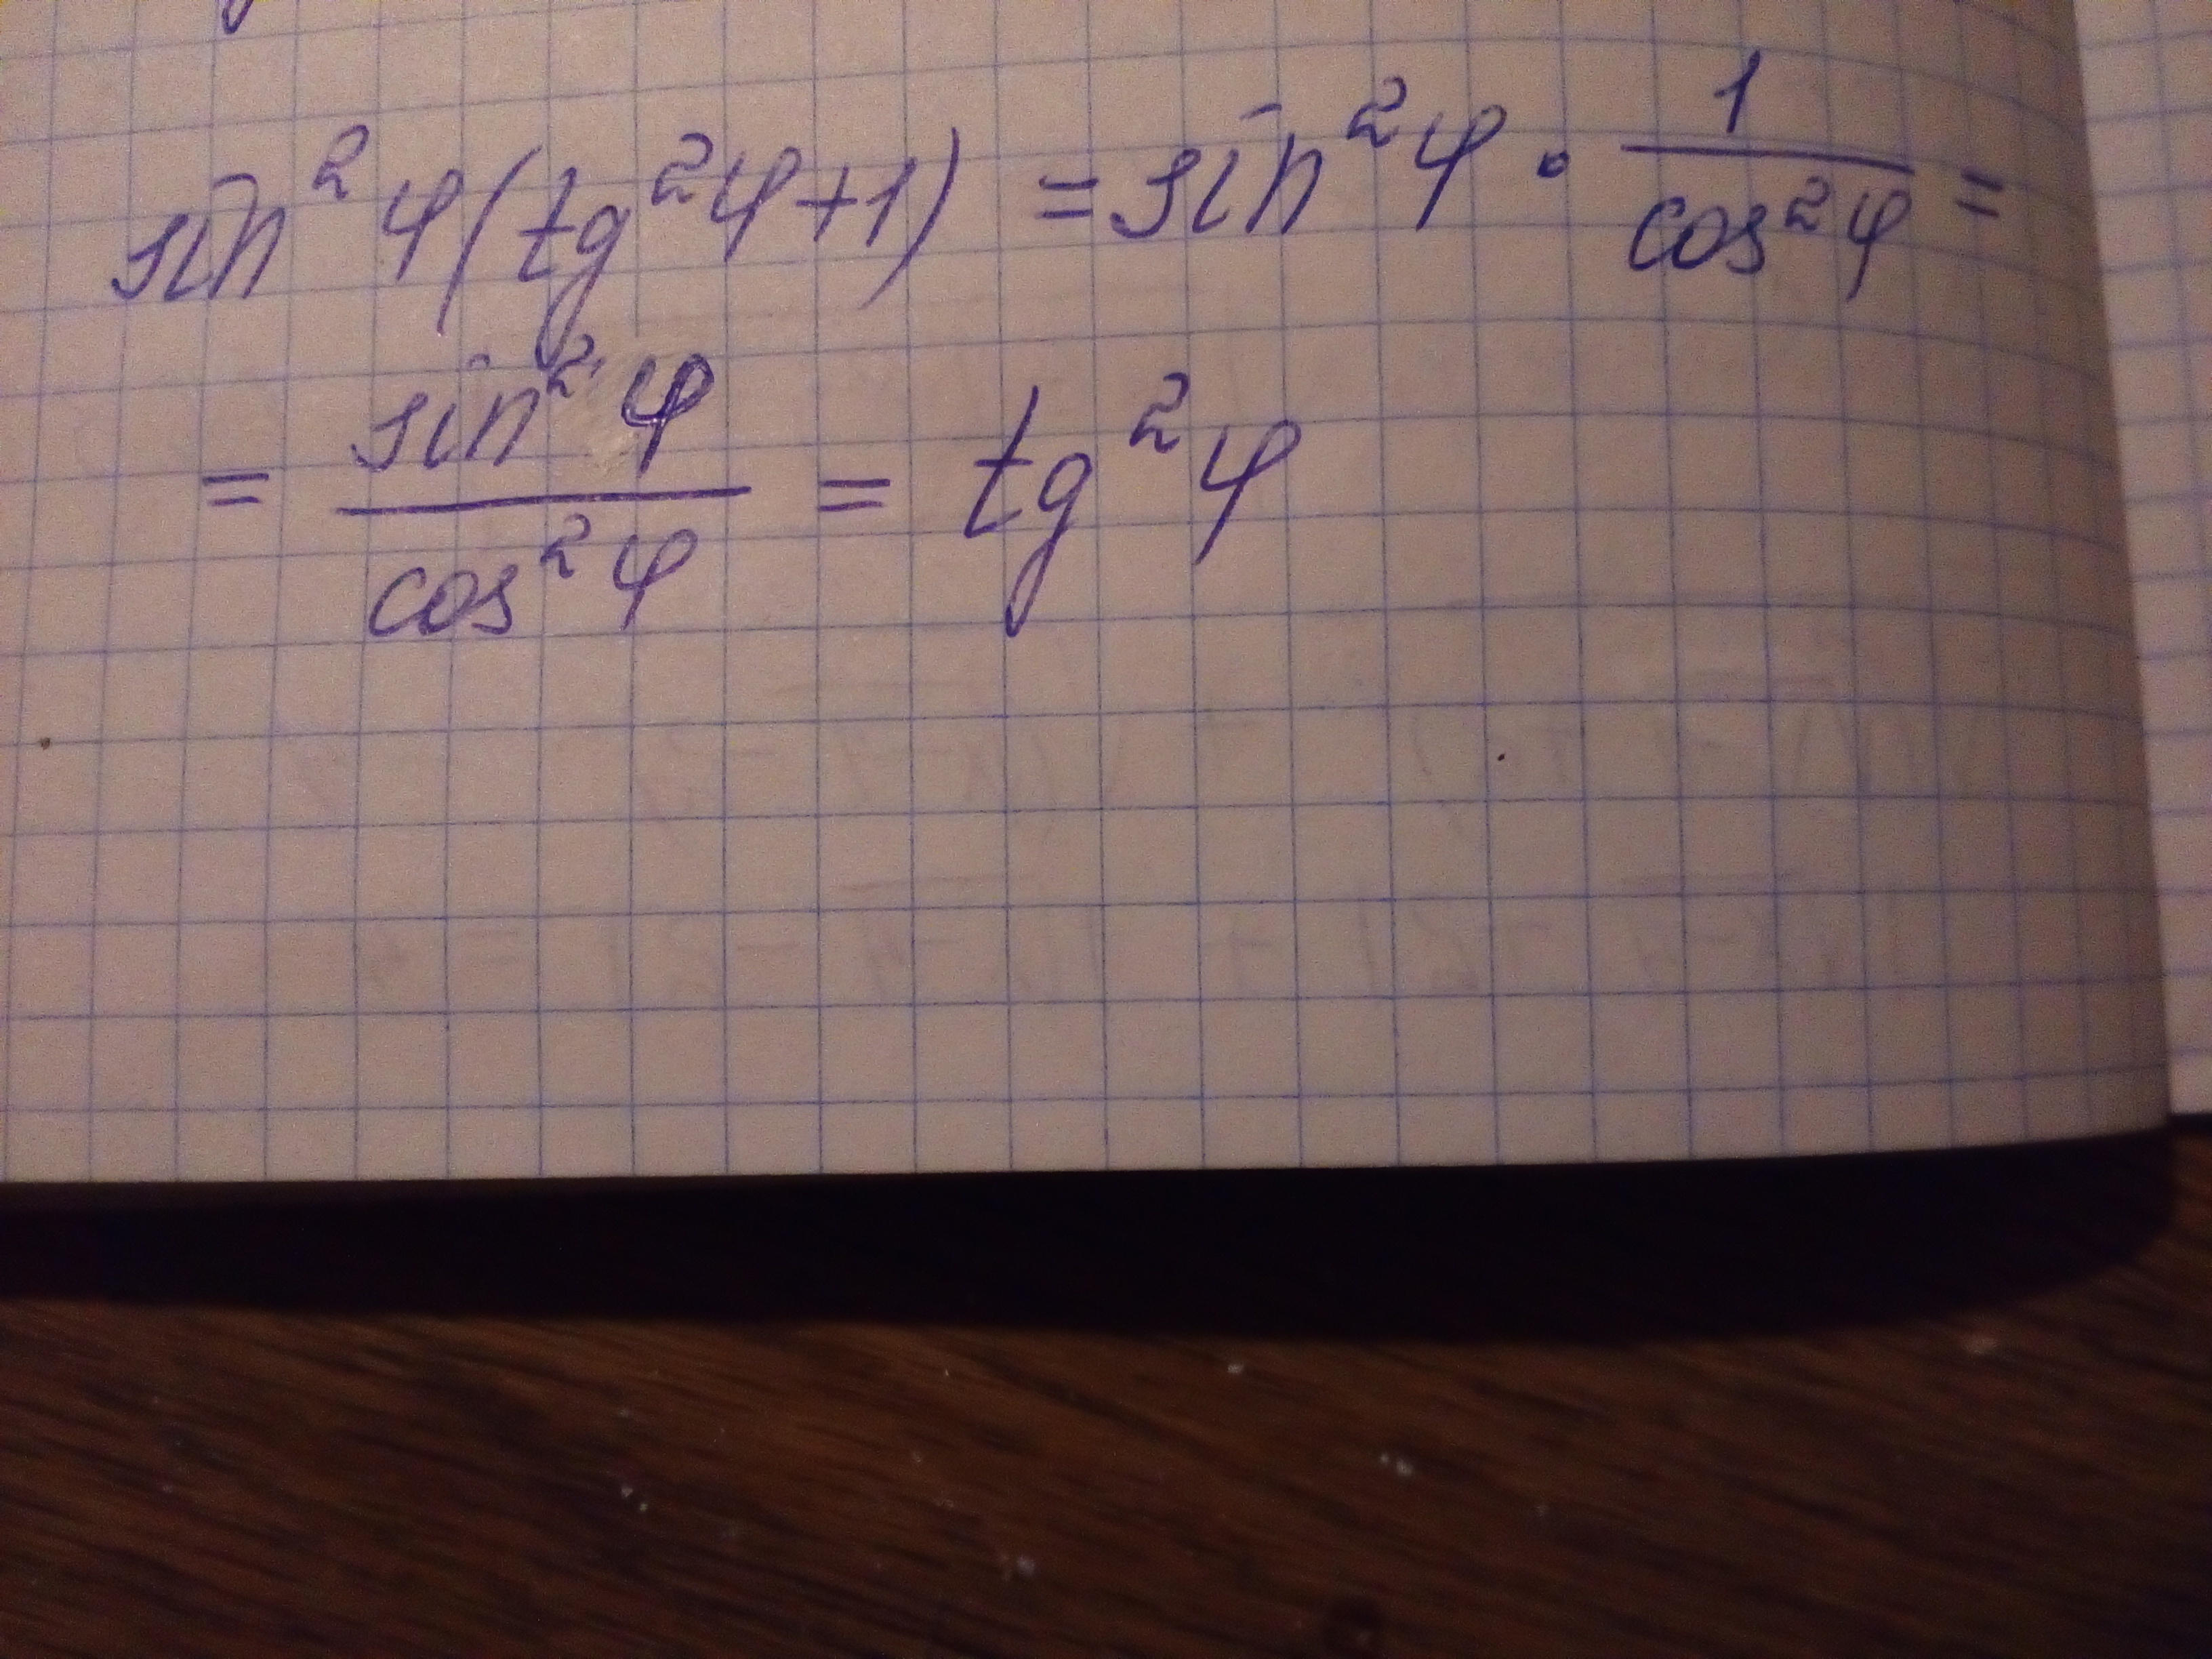 sin²φ(tg²φ+1) = sin²φ · 1/cos²φ =
= sin²φ/cos²φ = tg²φ